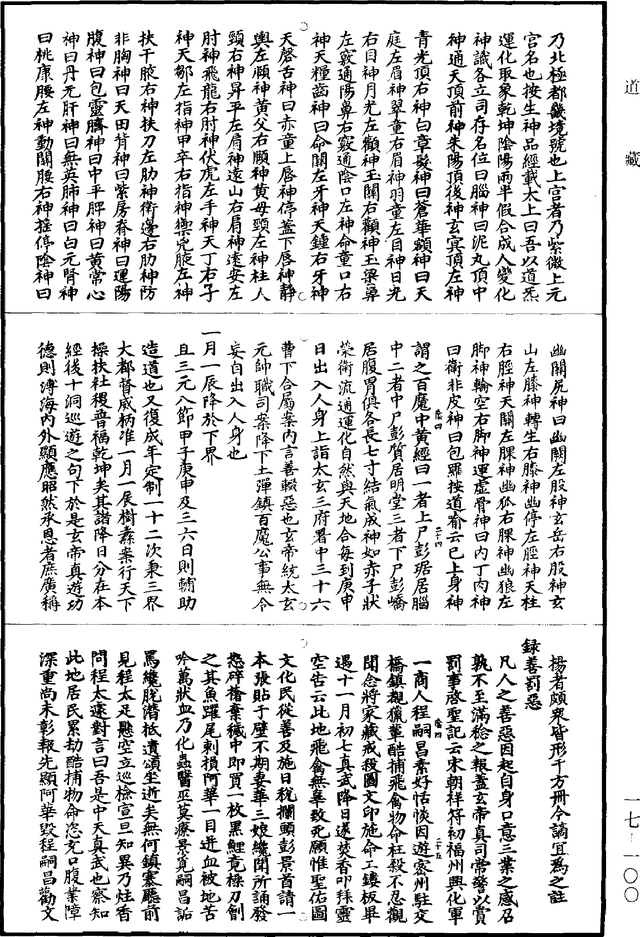 道藏
乃北極都畿境號也上宮者乃紫微上元
宮名也按生神品經載太上曰吾以道炁
運化取象乾坤陰陽兩半假合成人變化
神識各立司存名位曰腦神曰泥丸頂中
神通天頂前神朱陽頂後神玄冥頂左神
青光頂右神白章髮神曰蒼華額神曰天
庭左眉神翠童右眉神羽童左目神日光
右目神月光左顴神玉闕右顴神玉梁鼻
左竅通陽鼻右竅通陰口左神命童口右
神天糧齒神曰命關左牙神天鍾右牙神
天磬舌神曰赤童上唇神停蓋下唇神靜
輿左頤神黃父右頤神黃母頸左神柱人
頸右神昇平左肩神遠山右肩神遠安左
肘神飛龍右肘神伏虎左手神天丁右手
神天鄒左指神甲卒右指神禦兇腋左神
扶干腋右神扶刀左肋神衛邊右肋神防
非胸神曰天田背神曰紫房脊神曰運陽
腹神曰包靈臍神曰中平脾神曰黃常心
神曰丹元肝神曰無英肺神曰白元腎神
曰桃康腰左神動關腰右神搖停陰神曰
幽關尻神曰幽關左股神玄岳右股神玄
山左膝神轉生右膝神幽停左脛神天柱
右脛神天關左腂神幽狐右腂神幽狼左
脚神輪空右脚神運虛骨神曰內丁肉神
曰衛非皮神曰包羅按道齋云已上身神
謂之百魔中黃經曰一者上尸彭琚居腦
中二者中尸彭質居明堂三者下尸彭矯
居腹胃俱各長七寸結氣成神如赤子狀
榮衛流通運化自然與天地合每到庚申
日出入人身上詣太玄三府署中三十六
曹下合屬案內言善輟惡也玄帝統太玄
元帥職司案降下土彈鎮百魔公事無令
妄自出入人身也
一月一辰降於下界
且三元八節甲子庚申及三六日則輔助
造道也又復成年定制一十二次秉三界
大都督威柄准一月一辰樹纛案行天下
操扶社稷普福乾坤矣其諸降日分在本
經後十洞巡遊之句下於是玄帝真遊功
德則溥海內外顯應昭然承恩者庶廣稱
揚者頗眾皆形千方冊今謫宜為之註
録善罰惡
凡人之善惡因起自身口意三業之感召
孰不至滿稔之報蓋玄帝真司常等以賞
罰事啓聖記云宋朝祥符初福州興化軍
一商人程嗣昌素好恬恢因遊密州駐交
橋鎮覩獵蕐酷捕飛禽物命枉殺不忍觀
聞念將家藏戒殺圖文印施命工鏤板畢
遇十一月初七真武降日遂焚香叩拜靈
空告云此地飛禽無辜致死願惟聖佑圖
文化民從善及施日稅攔頭彭景首請一
本張貼于壁不期妻華三娘纔聞所誦發
怒碎擔棄穢中即買一枚黑鯉竟操刀劊
之其魚躍尾刺損阿華一目迸血被地苦
吟萬狀血乃化蟲醫巫莫療景覓嗣昌詬
罵纔脫潛抵遺頌坐逝矣無何鎮寨廳前
見程太足懸空立巡檢宣旦知異乃炷香
問程太遂對言曰吾是中天真武也察知
此地居民累劫酷捕物命恣充口腹業障
深重尚未彰報先顯阿華毀程嗣昌勸文
一七‐一〇〇